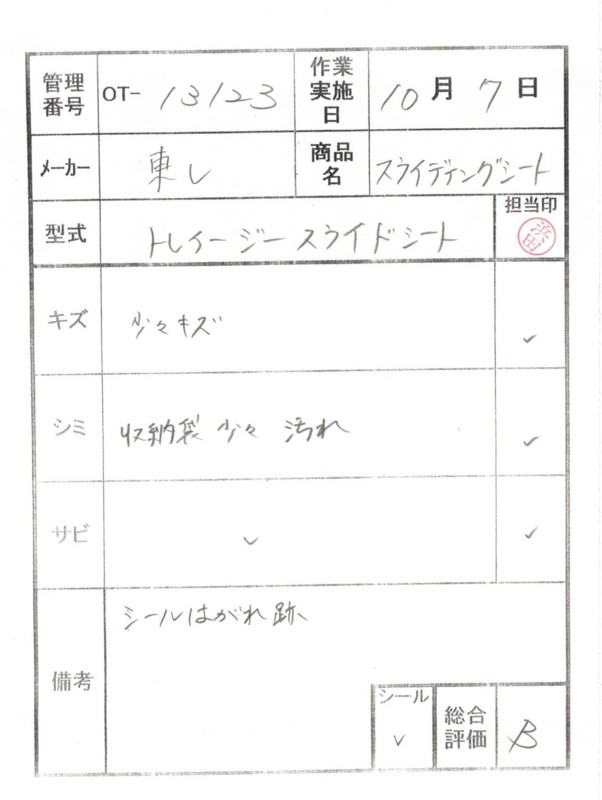 管理番号 OT- 13123 作業実施日 10月7日
メーカー 東レ 商品名 スライディングシート
型式 トレイージースライドシート 担当印
キズ 少々キズ ✓
シミ 収納袋 少々 汚れ ✓
サビ ✓ ✓
備考 シールはがれ跡
シール ✓ 総合評価 B